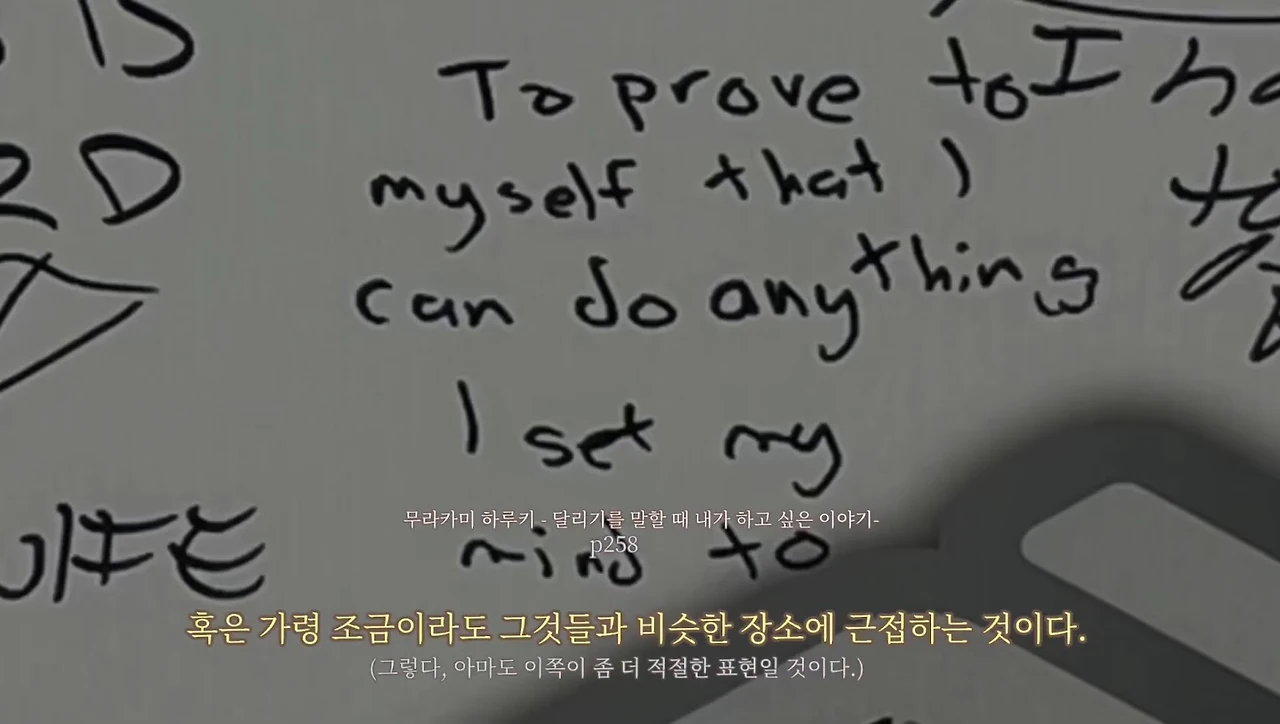 To prove to
myself that I
can do anything
I set my
mind to
I ha
2D
IFE
무라카미 하루키 - 달리기를 말할 때 내가 하고 싶은 이야기-
p258
혹은 가령 조금이라도 그것들과 비슷한 장소에 근접하는 것이다.
(그렇다, 아마도 이쪽이 좀 더 적절한 표현일 것이다.)